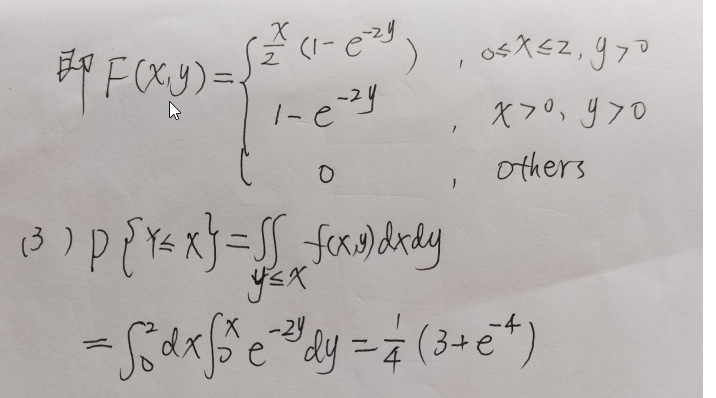 即 F(x,y) = { x/2 (1-e^{-2y}) , 0≤x≤2, y>0
1-e^{-2y} , x>0, y>0
0 , others
(3) P{Y≤X} = ∬_{y≤x} f(x,y)dxdy
= ∫_0^2 dx ∫_0^x e^{-2y} dy = 1/4 (3+e^{-4})